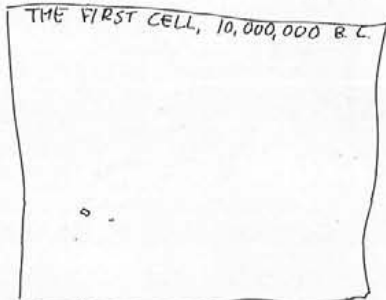 THE FIRST CELL, 10,000,000 B.C.